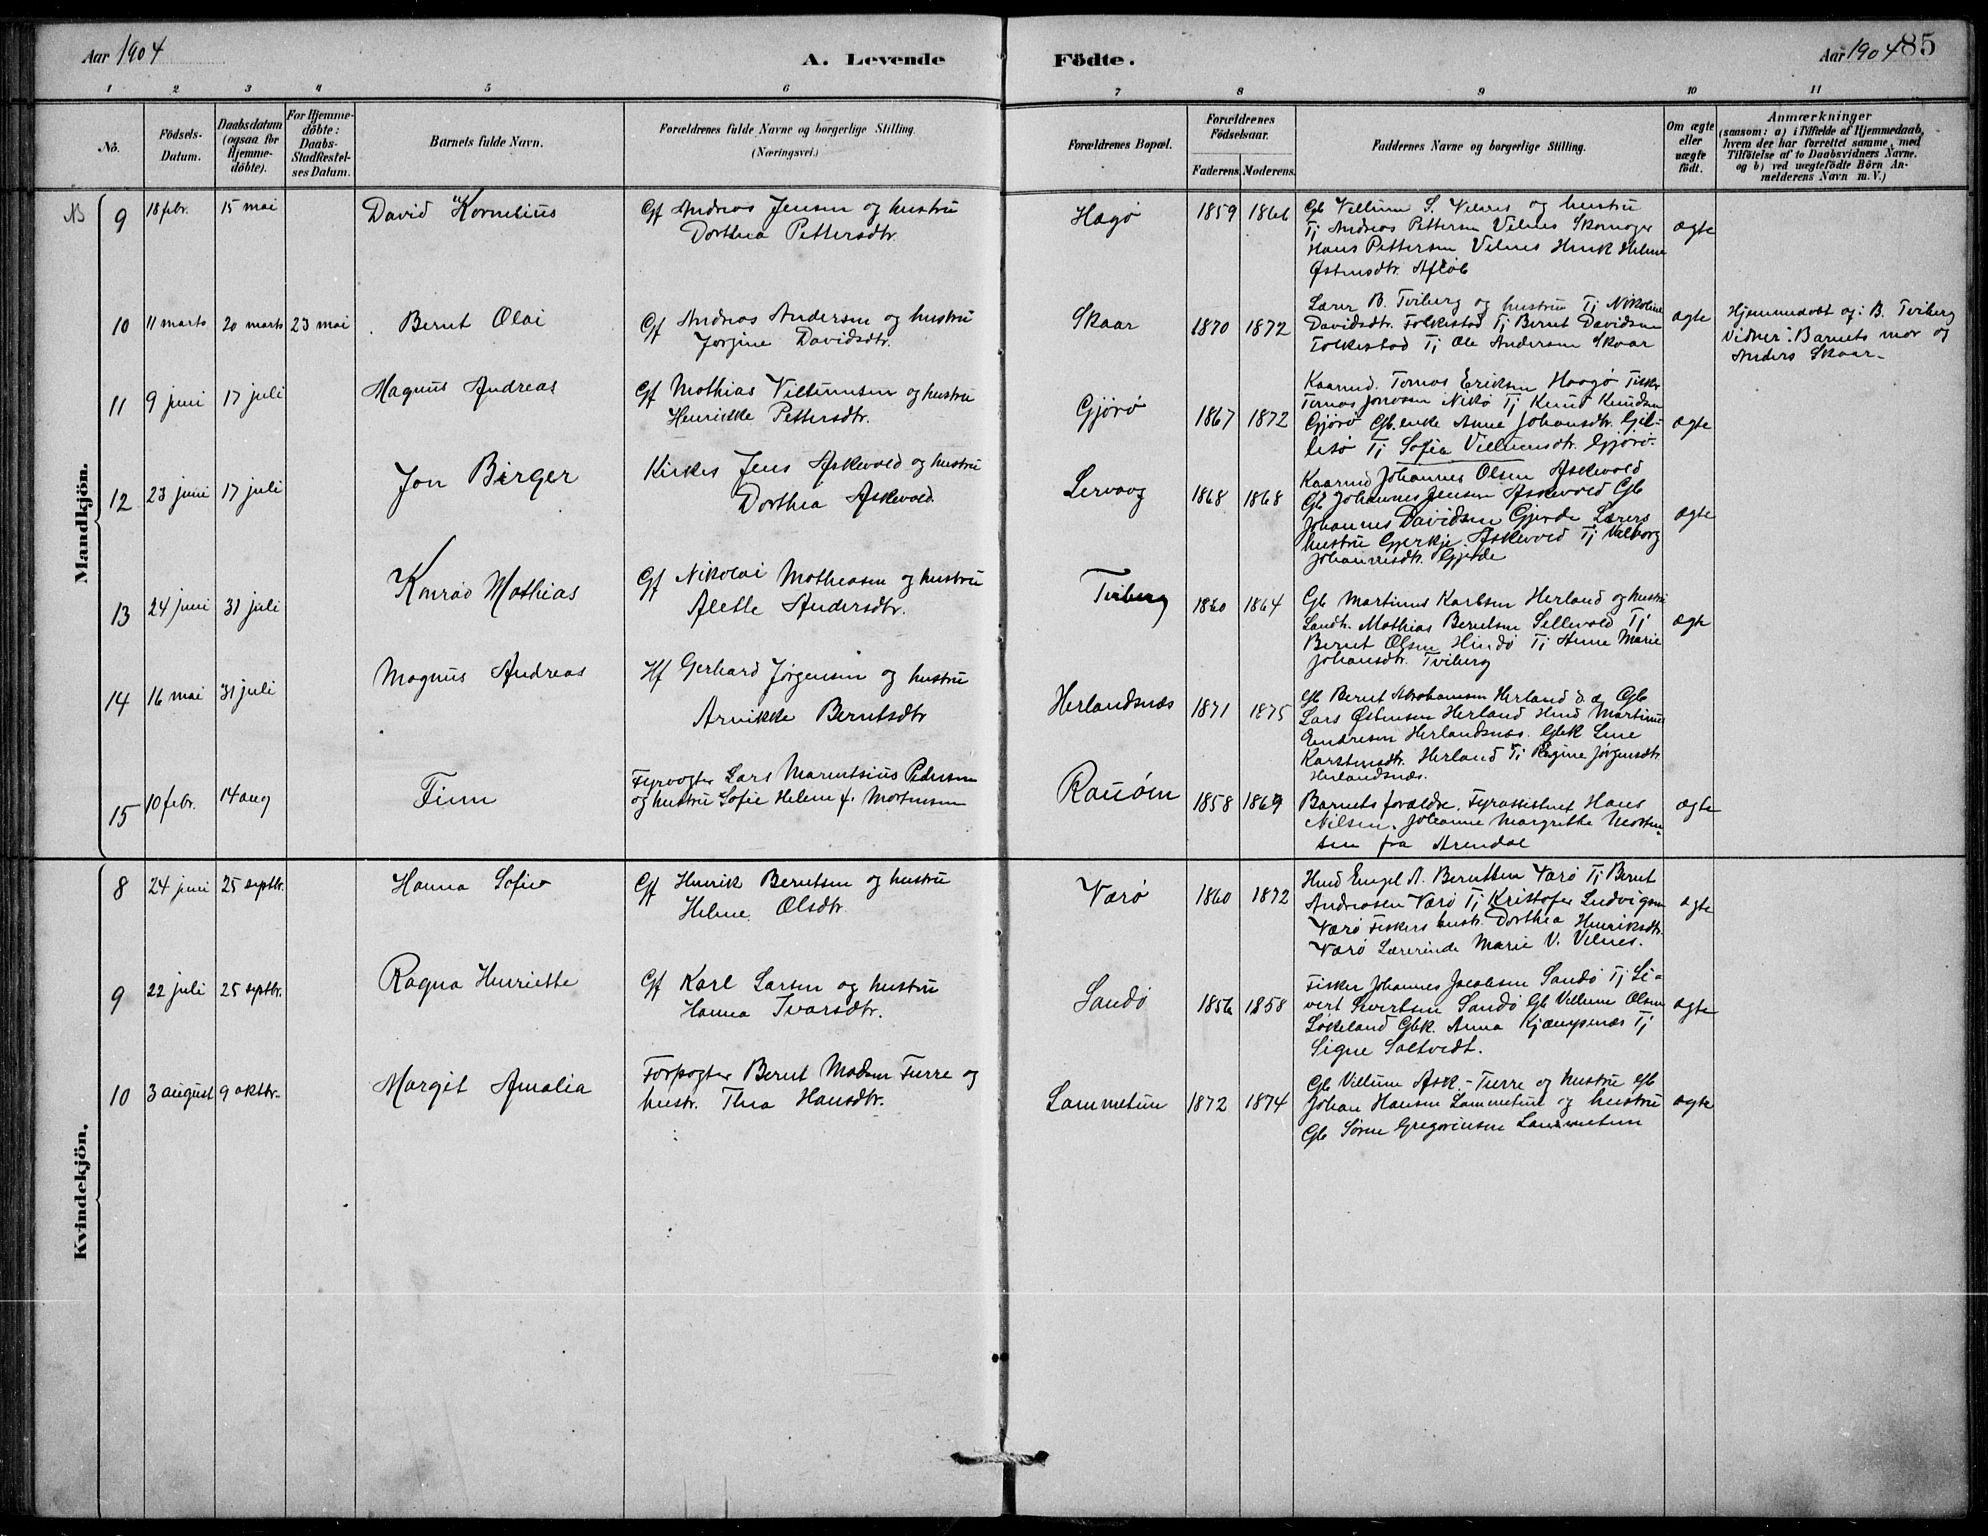 Aar 1904
A. Levende Födte.
Aar 1904 85
1 2 3 4 5 6 7 8 9 10 11
No.
Födsels-Datum.
Daabsdatum (ogsaa for Hjemme-döbte).
For Hjemme-döbte: Daabs-Stadfæstel-ses Datum.
Barnets fulde Navn.
Forældrenes fulde Navne og borgerlige Stilling. (Næringsvei.)
Forældrenes Bopæl.
Forældrenes Födselsaar.
Faderens. Moderens.
Faddernes Navne og borgerlige Stilling.
Om ægte eller uægte födt.
Anmærkninger
(saasom: a) i Tilfælde af Hjemmedaab, hvem der har forrettet samme, med Tilföielse af to Daabsvidners Navne, og b) ved uægtefödte Börn An-melderens Navn m. V.)
Mandkjön.
9 18 febr. 15 mai David Kornelius
Gf Andreas Jensen og hustru
Dorthea Pettersdtr.
Hagø 1859 1866
Gb Villum S. Vilnes og hustru
Tj Andreas Pettersen Vilnes Skomager
Hans Pettersen Vilnes Henrik Helene
Østensdtr. Afløb
ægte
10 11 marts 20 marts 23 mai Bernt Olai
Gf Andreas Andersen og hustru
Jørgine Davidsdtr.
Skaar 1870 1872
Lærer B. Tviberg og hustru Tj Nikoline
Davidsdtr. Folkestad Tj Bernt Davidsen
Folkestad Tj Ole Andersen Skaar
ægte
Hjemmedøbt af: B. Tviberg
Vidner: Barnets mor og
Anders Skaar.
11 9 juni 17 juli Magnus Andreas
Gf Mathias Villumsen og hustru
Henrikke Pettersdtr.
Gjörö 1867 1872
Kaarmd. Tomas Eriksen Haagø Fisker
Tomas Nikö Tj Knud Knudsen
Gjörö Gb. enke Anne Johansdtr. Gil-
lesö Tj Sofia Villumsdtr. Gjörö.
ægte
12 23 juni 17 juli Jon Birger
Kirkes Jens Askevold og hustru
Dorthea Askevold
Lervaag 1868 1868
Kaarmd Johannes Olsen Askevold
Gb Johannes Jensen Askevold Gb
Johannes Davidsen Gjerde Lærers
hustru Gjertje Askevold Tj Valborg
Johannesdtr. Gjerde
ægte
13 24 juni 31 juli Konrad Mathias
Gf Nikolai Mathiasen og hustru
Alette Andersdtr.
Tviberg 1860 1864
Gb Martinus Karlsen Herland og hustru
Landh. Mathias Berntsen Sellevold Tj
Bernt Olsen Hindö Tj Anne Marie
Johansdtr. Tviberg
ægte
14 16 mai 31 juli Magnus Andreas
Hf Gerhard Jørgensen og hustru
Arnikke Berntsdtr
Herlandsnæs 1871 1875
Gb Bernt Abrahamsen Herland d. æ Gb
Lars Østensen Herland Hmd Martinus
Endresen Herlandsnæs. Gbk Line
Karstensdtr. Herland Tj Regine Jørgensdtr
Herlandsnæs.
15 10 febr. 14 aug Finn
Fyrvogter Lars Marentsius Pedersen
og hustru Sofie Helene f. Mortensen
Rauöen 1858 1869
Barnets forældre. Fyrassistent Hans
Nilsen. Johanne Margrethe Morten-
sen fra Arendal
ægte
Kvindekjön.
8 24 juni 25 septbr. Hanna Sofie
Gf Henrik Berntsen og hustru
Helene Olsdtr.
Værö 1860 1872
Hmd Engel A. Berntsen Værö Tj Bernt
Andreasen Værö Tj Kristofer Ludvigsen
Værö Fiskers hustr. Dorthea Henriksdtr.
Værö Lærerinde Marie V. Vilnes.
ægte
9 22 juli 25 septbr. Ragna Henriette
Gf Karl Larsen og hustru
Hanna Ivarsdtr.
Sandö 1856 1858
Fisker Johannes Jacobsen Sandö Tj Si-
vert Sivertsen Sandö Gb Villum Olsen
Løkeland Gbk. Anna Kjempenæs Tj
Signe Saltvedt.
ægte
10 3 august 9 oktbr. Margit Amalia
Forpagter Bernt Madsen Furre og
hustr. Thea Hansdtr.
Lammetun 1872 1874
Gb Villum Ask.-Furre og hustru Gb
Johan Hansen Lammetun og hustru
Gb Sören Gregoriusen Lammetun
ægte